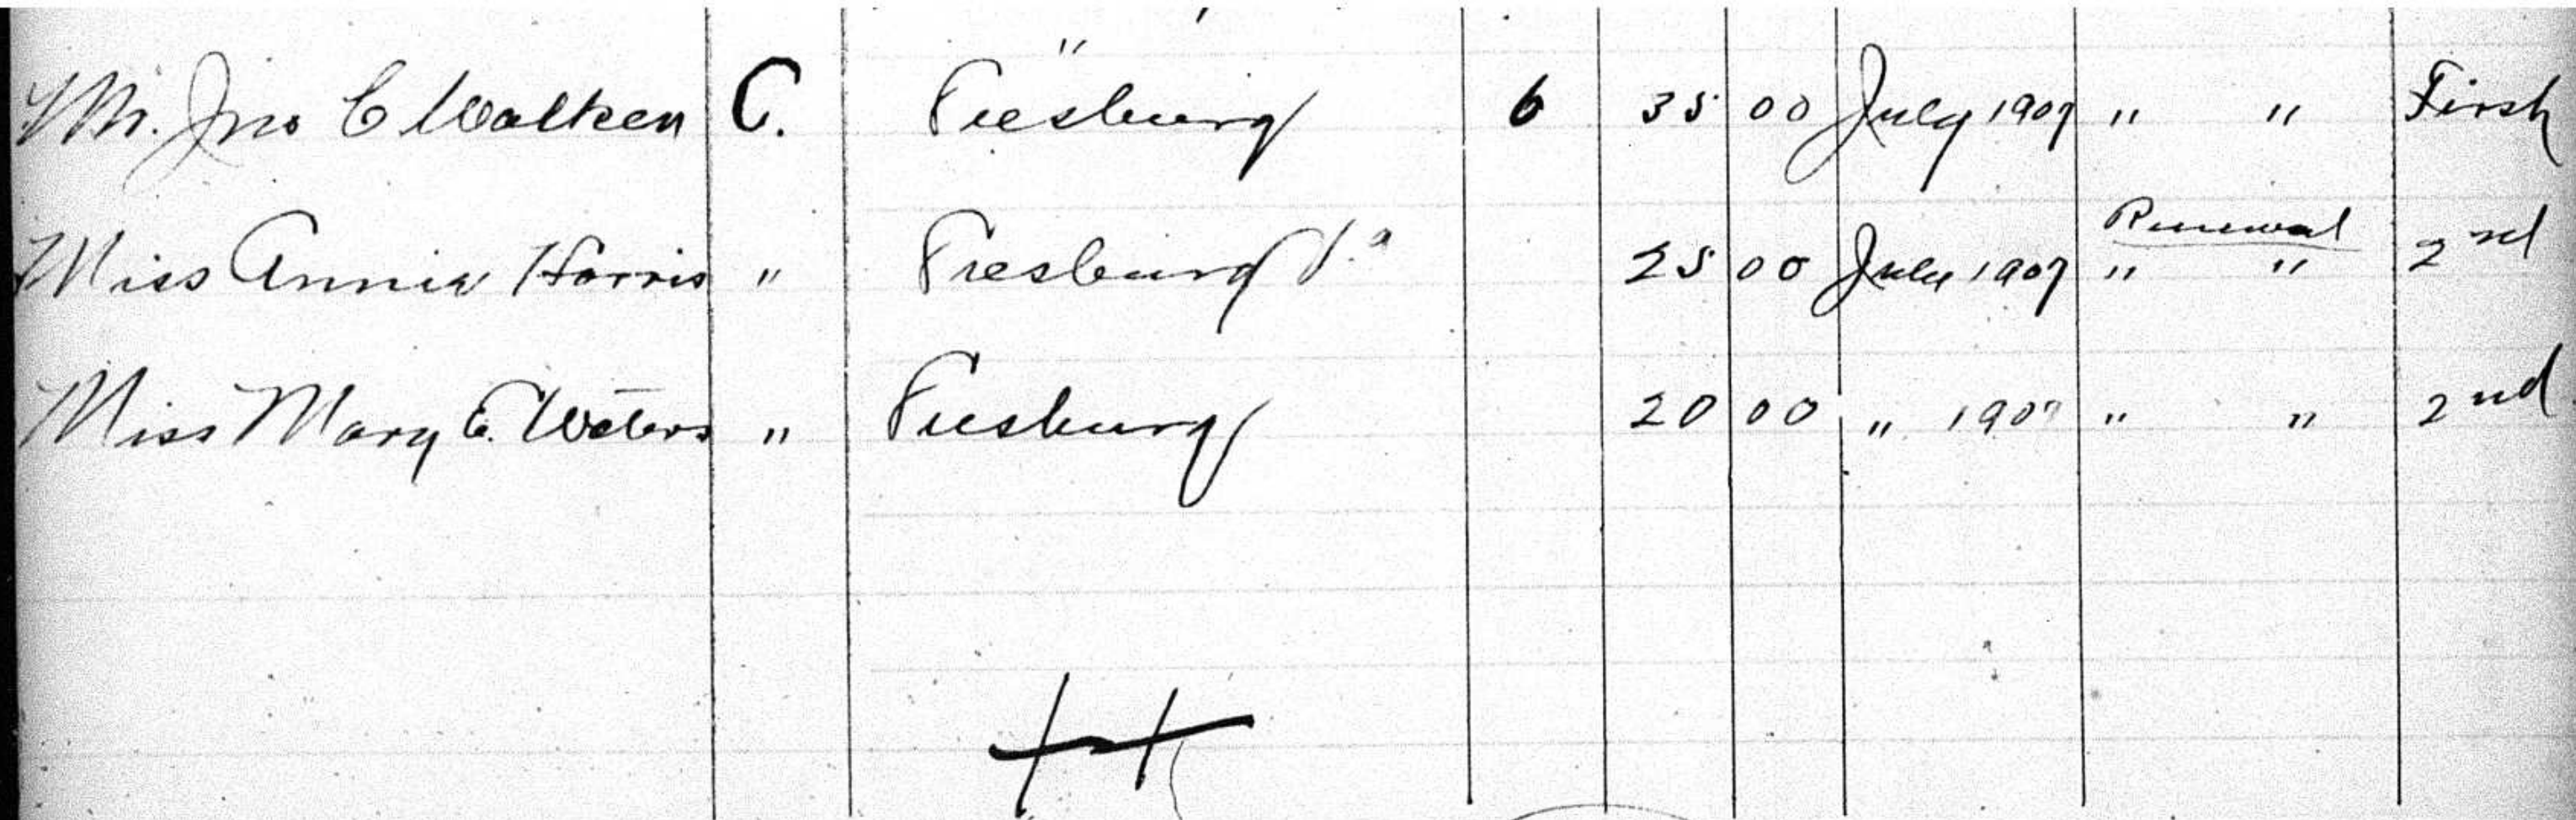 "
Mr. Jno C Walker C. F'esburg 6 35 00 July 1907 " " First
Miss Annie Harris " F'esburg Va 25 00 July 1907 Renewal " " 2nd
Miss Mary E. Waters " F'esburg 20 00 " 1907 " " 2nd